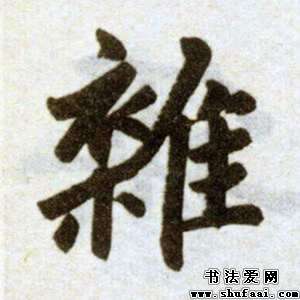 雜
书法爱网
www.shufaai.com